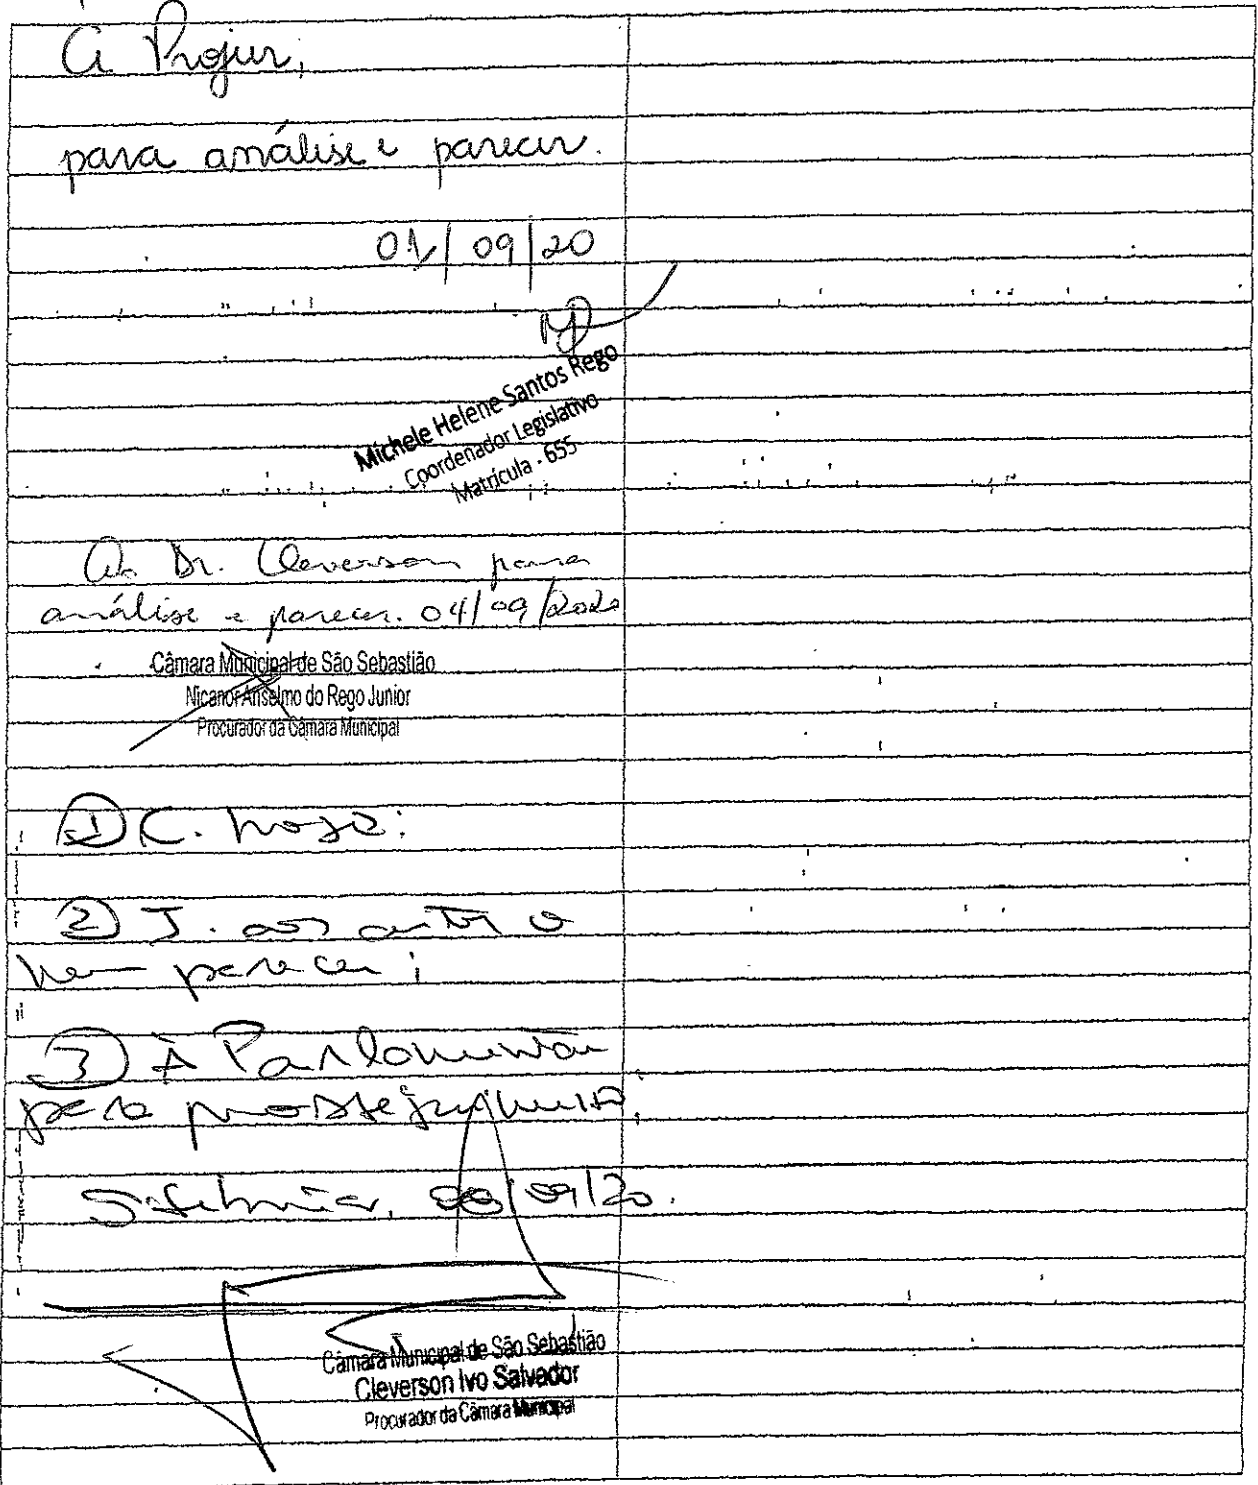 À Projur,
para análise e parecer.
01/09/20
Michele Helene Santos Rego
Coordenador Legislativo
Matrícula - 655
Ao Dr. Cleverson para
análise e parecer. 04/09/2020
Câmara Municipal de São Sebastião
Nicanor Anselmo do Rego Junior
Procurador da Câmara Municipal
① C. hoje:
② J. aos autos o
meu parecer;
③ À Parlamentar
para prosseguimento,
09/20.
Câmara Municipal de São Sebastião
Cleverson Ivo Salvador
Procurador da Câmara Municipal